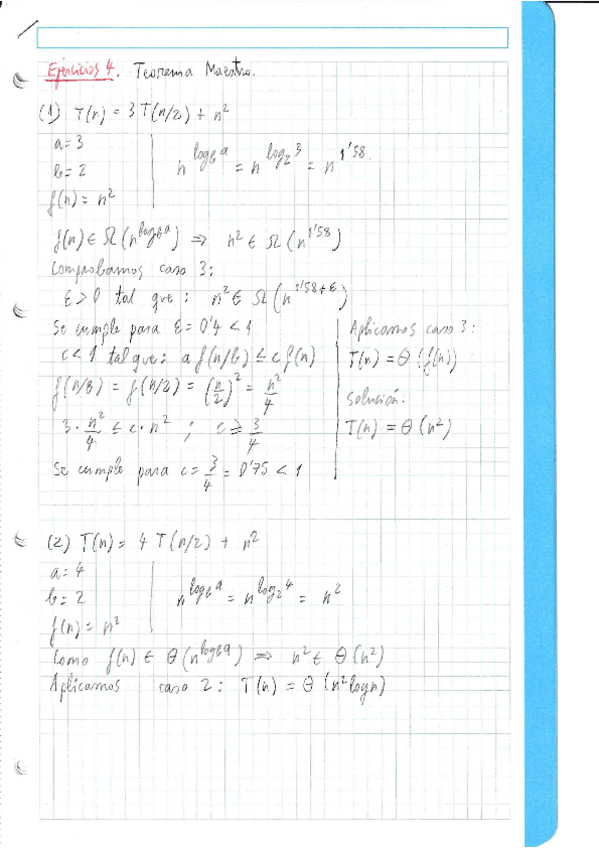 Ejercicios 4. Teorema Maestro.
(1) T(n) = 3T(n/2) + n²
a = 3
b = 2
f(n) = n²
n^(log_b a) = n^(log_2 3) = n^(1'58).
f(n) ∈ Ω(n^(log_b a)) ⇒ n² ∈ Ω(n^(1'58))
Comprobamos caso 3:
ε > 0 tal que: n² ∈ Ω(n^(1'58+ε))
Se cumple para ε = 0'4 < 1
c < 1 tal que: a f(n/b) ≤ c f(n)
f(n/b) = f(n/2) = (n/2)² = n²/4
3 · n²/4 ≤ c · n² ; c ≥ 3/4
Se cumple para c = 3/4 = 0'75 < 1
Aplicamos caso 3:
T(n) = Θ(f(n))
Solución:
T(n) = Θ(n²)
(2) T(n) = 4T(n/2) + n²
a = 4
b = 2
f(n) = n²
n^(log_b a) = n^(log_2 4) = n²
Como f(n) ∈ Θ(n^(log_b a)) ⇒ n² ∈ Θ(n²)
Aplicamos caso 2: T(n) = Θ(n² log n)